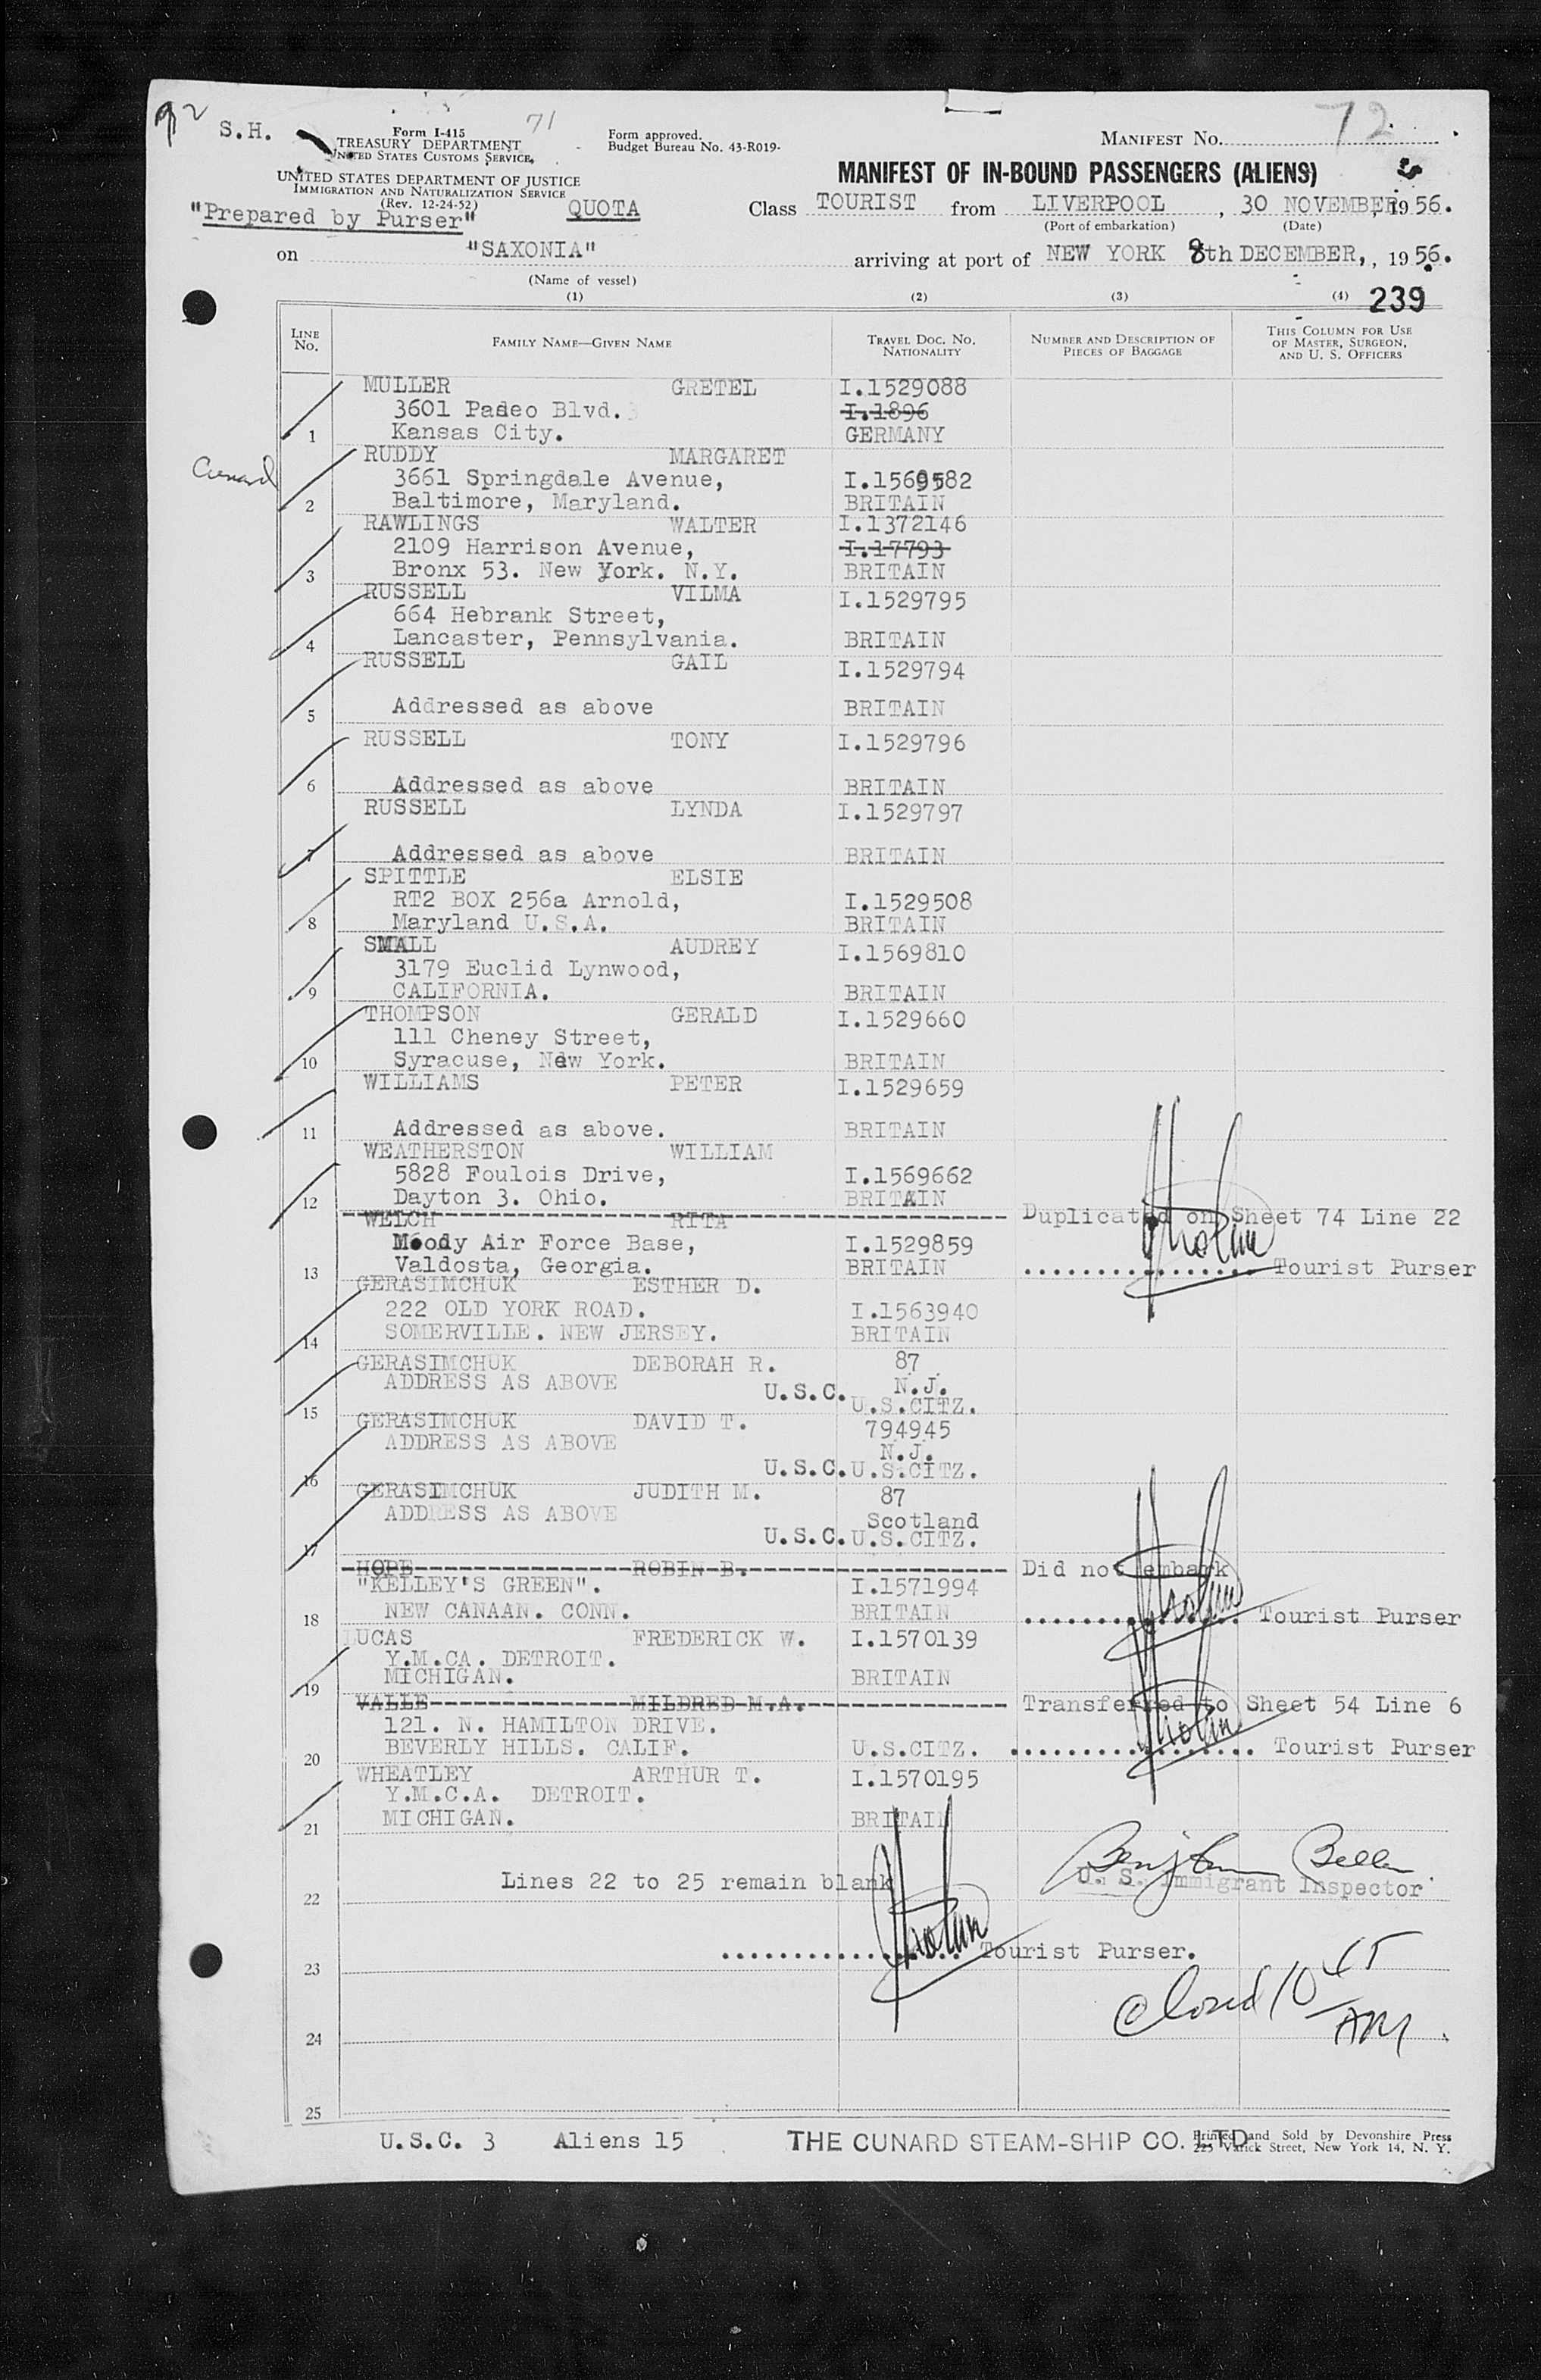 92 S.H.
71
72
Form I-415
TREASURY DEPARTMENT
UNITED STATES CUSTOMS SERVICE
Form approved.
Budget Bureau No. 43-R019-
MANIFEST NO.
UNITED STATES DEPARTMENT OF JUSTICE
IMMIGRATION AND NATURALIZATION SERVICE
(Rev. 12-24-52)
MANIFEST OF IN-BOUND PASSENGERS (ALIENS)
"Prepared by Purser" QUOTA
Class TOURIST from LIVERPOOL, 30 NOVEMBER, 1956.
(Port of embarkation) (Date)
on "SAXONIA" arriving at port of NEW YORK 8th DECEMBER,, 1956.
(Name of vessel)
(1) (2) (3) (4) 239
LINE No. FAMILY NAME—GIVEN NAME TRAVEL DOC. NO. NATIONALITY NUMBER AND DESCRIPTION OF PIECES OF BAGGAGE THIS COLUMN FOR USE OF MASTER, SURGEON, AND U. S. OFFICERS
MULLER GRETEL I.1529088
3601 Padeo Blvd. I.1896
1 Kansas City. GERMANY
Cunard
RUDDY MARGARET
3661 Springdale Avenue, I.1569582
2 Baltimore, Maryland. BRITAIN
RAWLINGS WALTER I.1372146
2109 Harrison Avenue, I.17793
3 Bronx 53. New York. N.Y. BRITAIN
RUSSELL VILMA I.1529795
664 Hebrank Street,
4 Lancaster, Pennsylvania. BRITAIN
RUSSELL GAIL I.1529794
5 Addressed as above BRITAIN
RUSSELL TONY I.1529796
6 Addressed as above BRITAIN
RUSSELL LYNDA I.1529797
7 Addressed as above BRITAIN
SPITTLE ELSIE
RT2 BOX 256a Arnold, I.1529508
8 Maryland U.S.A. BRITAIN
SMALL AUDREY I.1569810
3179 Euclid Lynwood,
9 CALIFORNIA. BRITAIN
THOMPSON GERALD I.1529660
111 Cheney Street,
10 Syracuse, New York. BRITAIN
WILLIAMS PETER I.1529659
11 Addressed as above. BRITAIN
WEATHERSTON WILLIAM
5828 Foulois Drive, I.1569662
12 Dayton 3. Ohio. BRITAIN
WELCH RITA Duplicated on Sheet 74 Line 22
Moody Air Force Base, I.1529859
13 Valdosta, Georgia. BRITAIN Tourist Purser
GERASIMCHUK ESTHER D.
222 OLD YORK ROAD. I.1563940
14 SOMERVILLE. NEW JERSEY. BRITAIN
GERASIMCHUK DEBORAH R. 87
ADDRESS AS ABOVE U.S.C. N.J.
15 U.S.CITZ.
GERASIMCHUK DAVID T. 794945
ADDRESS AS ABOVE N.J.
16 U.S.C. U.S.CITZ.
GERASIMCHUK JUDITH M. 87
ADDRESS AS ABOVE Scotland
17 U.S.C. U.S.CITZ.
HOPE ROBIN B. Did not embark
"KELLEY'S GREEN". I.1571994
18 NEW CANAAN. CONN. BRITAIN Tourist Purser
LUCAS FREDERICK W. I.1570139
Y.M.CA. DETROIT.
19 MICHIGAN. BRITAIN
VALLE MILDRED M.A. Transferred to Sheet 54 Line 6
121. N. HAMILTON DRIVE.
20 BEVERLY HILLS. CALIF. U.S.CITZ. Tourist Purser
WHEATLEY ARTHUR T. I.1570195
Y.M.C.A. DETROIT.
21 MICHIGAN. BRITAIN
Lines 22 to 25 remain blank
22 U. S. Immigrant Inspector
Tourist Purser.
23
closed 10 45 AM
24
25
U.S.C. 3 Aliens 15 THE CUNARD STEAM-SHIP CO. LTD
Printed and Sold by Devonshire Press
225 Varick Street, New York 14, N. Y.